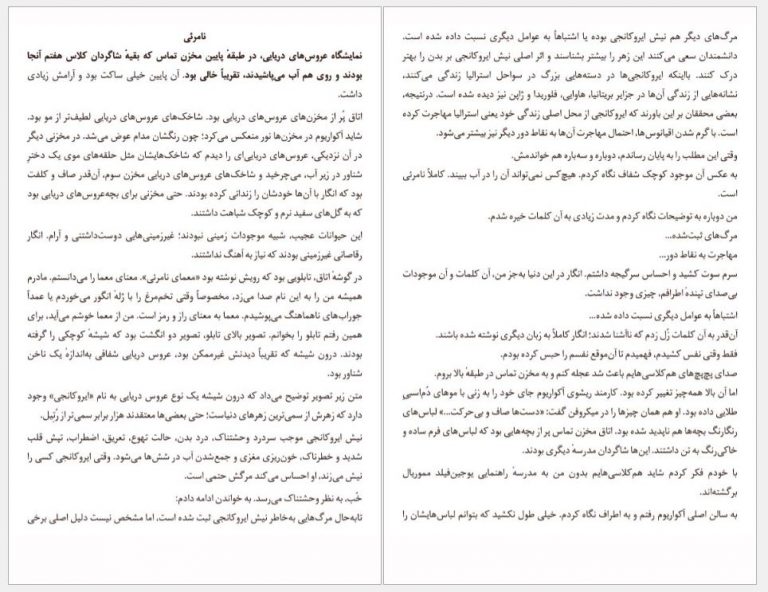 نامرئی
نمایشگاه عروس‌های دریایی، در طبقهٔ پایین مخزن تماس که بقیهٔ شاگردان کلاس هفتم آنجا
بودند و روی هم آب می‌پاشیدند، تقریباً خالی بود. آن پایین خیلی ساکت بود و آرامش زیادی
داشت.
اتاق پُر از مخزن‌های عروس‌های دریایی بود. شاخک‌های عروس‌های دریایی لطیف‌تر از مو بود.
شاید آکواریوم در مخزن‌ها نور منعکس می‌کرد؛ چون رنگشان مدام عوض می‌شد. در مخزنی دیگر
در آن نزدیکی، عروس‌های دریایی‌ای را دیدم که شاخک‌هایشان مثل حلقه‌های موی یک دخترِ
شناور در زیر آب، می‌چرخید و شاخک‌های عروس‌های دریایی مخزن سوم، آن‌قدر صاف و کلفت
بود که انگار با آن‌ها خودشان را زندانی کرده بودند. حتی مخزنی برای بچه‌عروس‌های دریایی بود
که به گل‌های سفید نرم و کوچک شباهت داشتند.
این حیوانات عجیب، شبیه موجودات زمینی نبودند؛ غیرزمینی‌هایی دوست‌داشتنی و آرام. انگار
رقاصانی غیرزمینی بودند که نیاز به آهنگ نداشتند.
در گوشهٔ اتاق، تابلویی بود که رویش نوشته بود «معمای نامرئی». معنای معما را می‌دانستم. مادرم
همیشه من را به این نام صدا می‌زد، مخصوصاً وقتی تخم‌مرغ را با ژلهٔ انگور می‌خوردم یا عمداً
جوراب‌های ناهماهنگ می‌پوشیدم. معما به معنای راز و رمز است. من از معما خوشم می‌آید، برای
همین رفتم تابلو را بخوانم. تصویر بالای تابلو، تصویر دو انگشت بود که شیشهٔ کوچکی را گرفته
بودند. درون شیشه که تقریباً دیدنش غیرممکن بود، عروس دریایی شفافی به‌اندازهٔ یک ناخن
شناور بود.
متن زیر تصویر توضیح می‌داد که درون شیشه یک نوع عروس دریایی به نام «ایروکانجی» وجود
دارد که زهرش از سمی‌ترین زهرهای دنیاست؛ حتی بعضی‌ها معتقدند هزار برابر سمی‌تر از رُتیل.
نیش ایروکانجی موجب سردرد وحشتناک، درد بدن، حالت تهوع، تعریق، اضطراب، تپش قلب
شدید و خطرناک، خون‌ریزی مغزی و جمع‌شدن آب در شش‌ها می‌شود. وقتی ایروکانجی کسی را
نیش می‌زند، او احساس می‌کند مرگش حتمی است.
خُب، به نظر وحشتناک می‌رسد. به خواندن ادامه دادم:
تابه‌حال مرگ‌هایی به‌خاطر نیش ایروکانجی ثبت شده است، اما مشخص نیست دلیل اصلی برخی
مرگ‌های دیگر هم نیش ایروکانجی بوده یا اشتباهاً به عوامل دیگری نسبت داده شده است.
دانشمندان سعی می‌کنند این زهر را بیشتر بشناسند و اثر اصلی نیش ایروکانجی بر بدن را بهتر
درک کنند. بااینکه ایروکانجی‌ها در دسته‌هایی بزرگ در سواحل استرالیا زندگی می‌کنند،
نشانه‌هایی از زندگی آن‌ها در جزایر بریتانیا، هاوایی، فلوریدا و ژاپن نیز دیده شده است. درنتیجه،
بعضی محققان بر این باورند که ایروکانجی از محل اصلی زندگی خود یعنی استرالیا مهاجرت کرده
است. با گرم شدن اقیانوس‌ها، احتمال مهاجرت آن‌ها به نقاط دور دیگر نیز بیشتر می‌شود.
وقتی این مطلب را به پایان رساندم، دوباره و سه‌باره هم خواندمش.
به عکس آن موجود کوچک شفاف نگاه کردم. هیچ‌کس نمی‌تواند آن را در آب ببیند. کاملاً نامرئی
است.
من دوباره به توضیحات نگاه کردم و مدت زیادی به آن کلمات خیره شدم.
مرگ‌های ثبت‌شده...
مهاجرت به نقاط دور...
سرم سوت کشید و احساس سرگیجه داشتم. انگار در این دنیا به‌جز من، آن کلمات و آن موجودات
بی‌صدای تپندهٔ اطرافم، چیزی وجود نداشت.
اشتباهاً به عوامل دیگری نسبت داده شده...
آن‌قدر به آن کلمات زُل زدم که ناآشنا شدند؛ انگار کاملاً به زبان دیگری نوشته شده باشند.
فقط وقتی نفس کشیدم، فهمیدم تا آن‌موقع نفسم را حبس کرده بودم.
صدای پچ‌پچ‌های هم‌کلاسی‌هایم باعث شد عجله کنم و به مخزن تماس در طبقهٔ بالا بروم.
اما آن بالا همه‌چیز تغییر کرده بود. کارمند ریشوی آکواریوم جای خود را به زنی با موهای دُم‌اسبی
طلایی داده بود. او هم همان چیزها را در میکروفن گفت؛ «دست‌ها صاف و بی‌حرکت...» لباس‌های
رنگارنگ بچه‌ها هم ناپدید شده بود. اتاق مخزن تماس پر از بچه‌هایی بود که لباس‌های فرم ساده و
خاکی‌رنگ به تن داشتند. این‌ها شاگردان مدرسهٔ دیگری بودند.
با خودم فکر کردم شاید هم‌کلاسی‌هایم بدون من به مدرسهٔ راهنمایی یوجین‌فیلد مموریال
برگشته‌اند.
به سالن اصلی آکواریوم رفتم و به اطراف نگاه کردم. خیلی طول نکشید که بتوانم لباس‌هایشان را